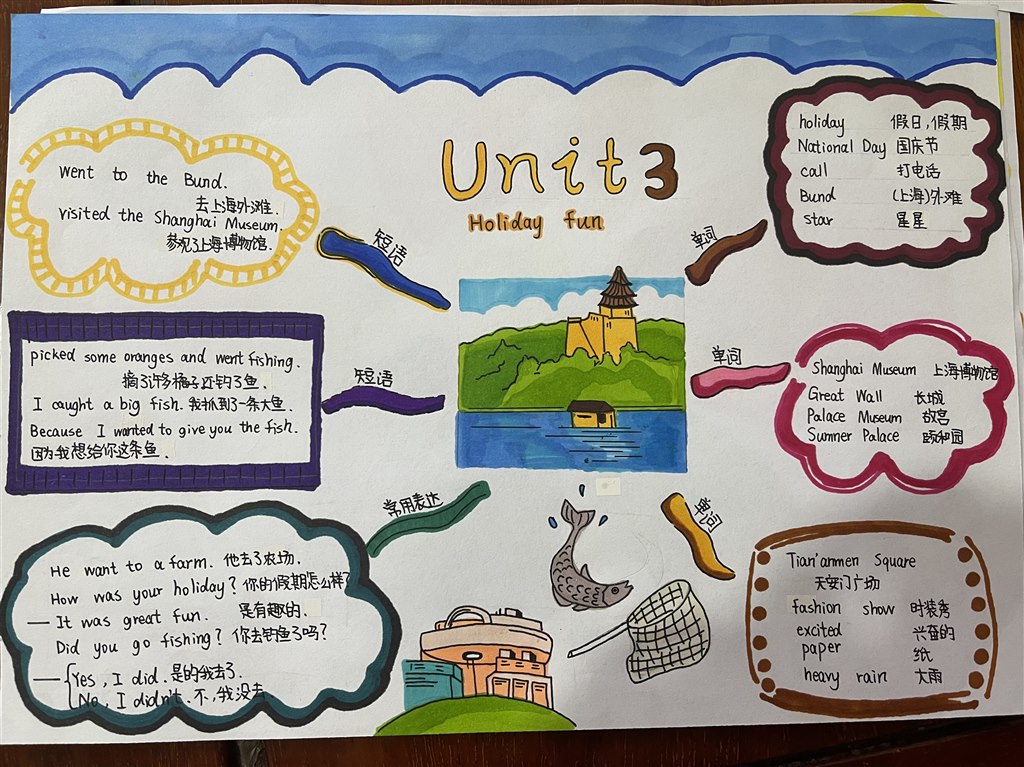 Unit 3
Holiday fun
went to the Bund.
去上海外滩.
visited the Shanghai Museum.
参观了上海博物馆.
短语
picked some oranges and went fishing.
摘了许多橘子还钓了鱼.
I caught a big fish. 我抓到了一条大鱼.
Because I wanted to give you the fish.
因为我想给你这条鱼.
短语
He want to a farm. 他去了农场.
How was your holiday? 你的假期怎么样?
— It was great fun. 是有趣的.
Did you go fishing? 你去钓鱼了吗?
— Yes, I did. 是的我去了.
No, I didn't. 不,我没去
常用表达
单词
holiday 假日,假期
National Day 国庆节
call 打电话
Bund (上海)外滩
star 星星
单词
Shanghai Museum 上海博物馆
Great Wall 长城
Palace Museum 故宫
Summer Palace 颐和园
单词
Tian'anmen Square
天安门广场
fashion show 时装秀
excited 兴奋的
paper 纸
heavy rain 大雨